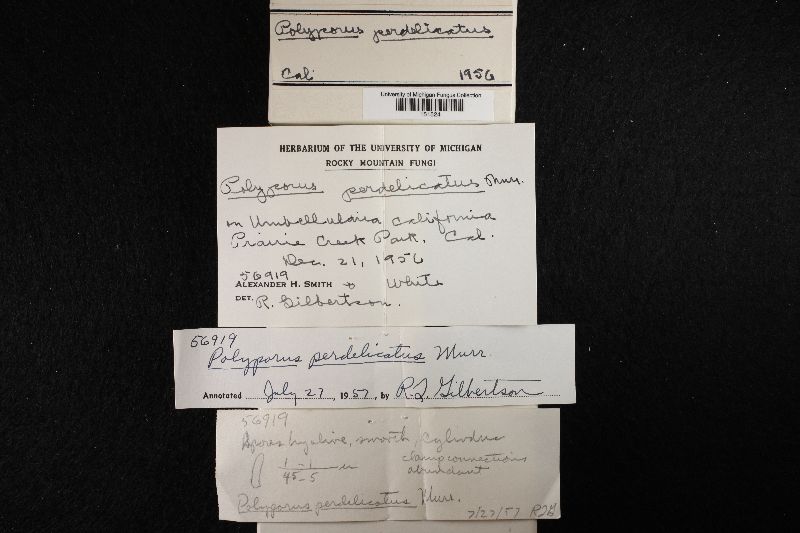 Polyporus perdelicatus
Cal 1956
University of Michigan Fungus Collection
151524
HERBARIUM OF THE UNIVERSITY OF MICHIGAN
ROCKY MOUNTAIN FUNGI
Polyporus perdelicatus Murr.
on Umbellularia california
Prairie Creek Park, Cal.
Dec. 21, 1956
56919
ALEXANDER H. SMITH & White
DET. R. Gilbertson.
56919
Polyporus perdelicatus Murr.
Annotated July 27, 1957, by R. L. Gilbertson
56919
Spores hyaline, smooth, cylindric
clamp connections
abundant
Polyporus perdelicatus Murr.
7/27/57 RLG